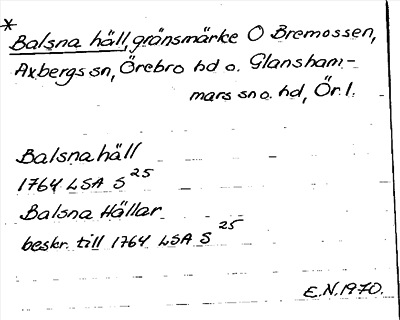 *
Balsna häll, gränsmärke O Bremossen,
Axbergs sn, Örebro hd o. Glansham-
mars sn o. hd, Ör. l.
Balsna häll
1764 LSA S 25
Balsna Hällar
beskr. till 1764 LSA S 25
E.N. 1970.